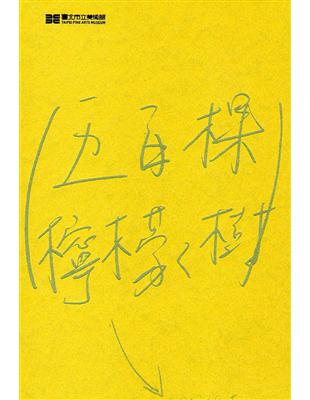 臺北市立美術館
TAIPEI FINE ARTS MUSEUM
(五百棵
檸檬樹)